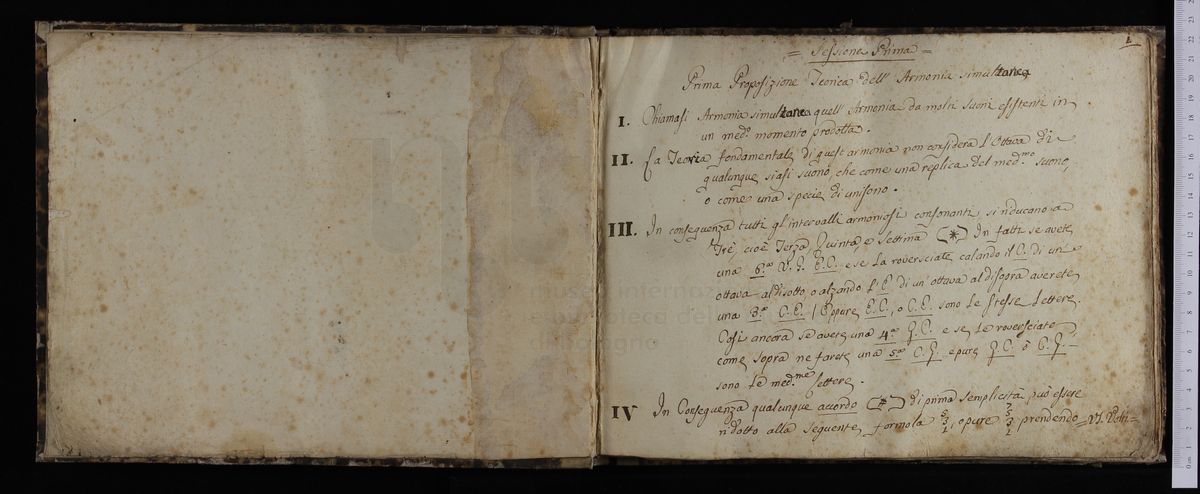 1
= Sessione Prima =
Prima Proposizione Teorica dell' Armonia simultanea
I. Chiamasi Armonia simultanea quell' Armonia da molti suoni esistenti in
un med.o momento prodotta.
II. La Teoria fondamentale di quest armonia non considera l'Ottava di
qualunque siasi suono, che come una replica del med.mo suono,
o come una specie di unisono.
III. In conseguenza tutti gl'intervalli armoniosi consonanti si riducano a
Trè, cioè Terza, Quinta, e Settima (*) In fatti se avete
una 6.a V. G. E.C. e se la roversciate calando il C. di un'
ottava al disotto o alzando l'E di un' ottava al disopra averete
una 3.a C.E. / Oppure E.C., o C.E. sono le stesse lettere.
Così ancora se avete una 4.a G.C. e se le roversciate
come sopra ne farete una 5.a C.G. epure G.C. ò C.G.
sono le med.me lettere.
IV In Conseguenza qualunque accordo (*) di prima semplicità può essere
ridotto alla seguente formola 5 3 1, opure 7 5 3 1 prendendo =
museo internazionale
e biblioteca della
di bologna